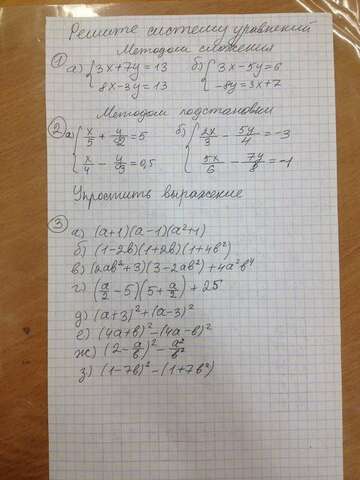 Решите систему уравнений
Методом сложения
① а) { 3x+7y=13 б) { 3x-5y=6
8x-3y=13 -8y=3x+7
Методом подстановки
② а) { x/5 + y/2 = 5 б) { 2x/3 - 5y/4 = -3
x/4 - y/3 = 0,5 5x/6 - 7y/8 = -1
Упростить выражение
③ а) (a+1)(a-1)(a²+1)
б) (1-2b)(1+2b)(1+4b²)
в) (2ab²+3)(3-2ab²)+4a²b⁴
г) (a/2 - 5)(5 + a/2) + 25
д) (a+3)²+(a-3)²
е) (4a+b)²-(4a-b)²
ж) (2 - a/b)² - a²/b²
з) (1-7b)²-(1+7b²)